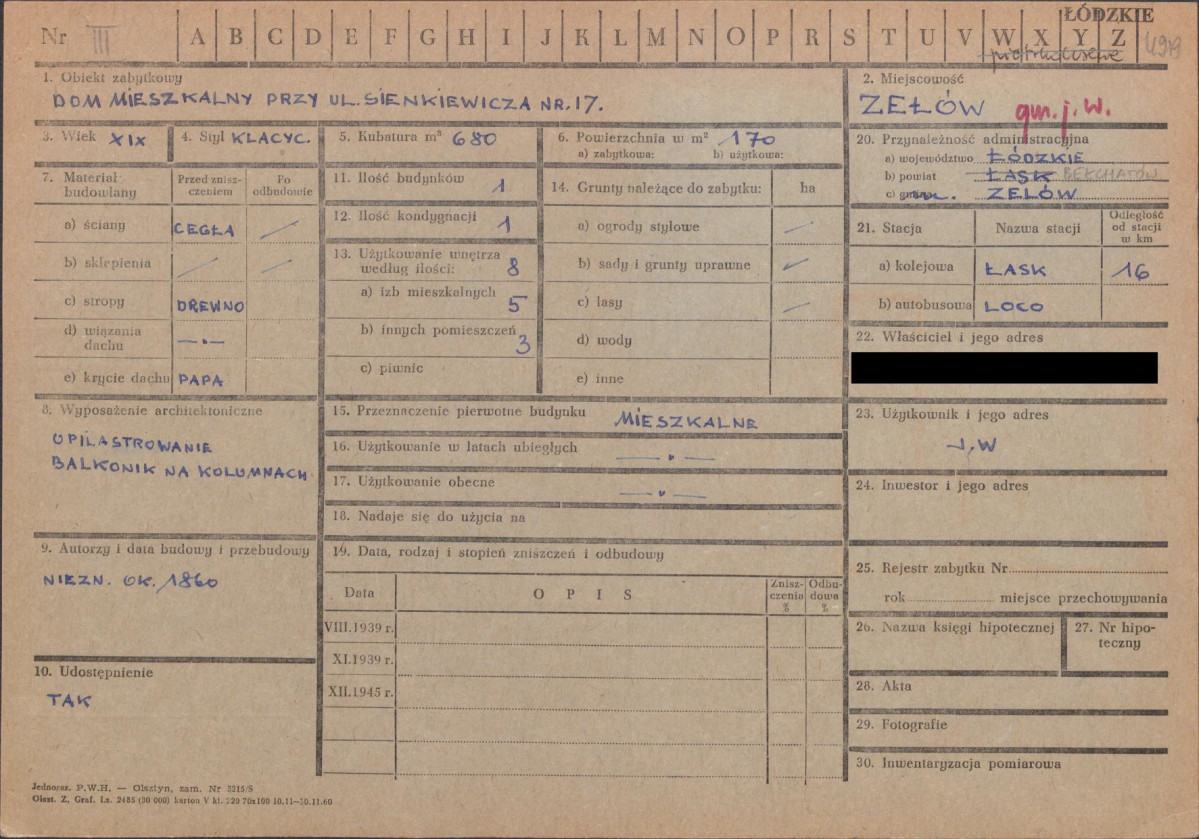 ŁÓDZKIE
Nr III A B C D E F G H I J K L M N O P R S T U V W X Y Z
1. Obiekt zabytkowy
DOM MIESZKALNY PRZY UL. SIENKIEWICZA NR. 17.
2. Miejscowość
ZEŁÓW gm. j. w.
3. Wiek XIX
4. Styl KLACYC.
5. Kubatura m³ 680
6. Powierzchnia w m² 170
a) zabytkowa: b) użytkowa:
7. Materiał budowlany
Przed znisz-
czeniem
Po
odbudowie
a) ściany CEGŁA
b) sklepienia
c) stropy DREWNO
d) wiązania
dachu —„—
e) krycie dachu PAPA
8. Wyposażenie architektoniczne
OPILASTROWANIE
BALKONIK NA KOLUMNACH
9. Autorzy i data budowy i przebudowy
NIEZN. OK. 1860
10. Udostępnienie
TAK
11. Ilość budynków 1
12. Ilość kondygnacji 1
13. Użytkowanie wnętrza
według ilości: 8
a) izb mieszkalnych 5
b) innych pomieszczeń 3
c) piwnic
14. Grunty należące do zabytku: ha
a) ogrody stylowe
b) sady i grunty uprawne
c) lasy
d) wody
e) inne
15. Przeznaczenie pierwotne budynku MIESZKALNE
16. Użytkowanie w latach ubiegłych —„—
17. Użytkowanie obecne —„—
18. Nadaje się do użycia na
19. Data, rodzaj i stopień zniszczeń i odbudowy
Data OPIS Znisz-
czenia
% Odbu-
dowa
%
VIII.1939 r.
XI.1939 r.
XII.1945 r.
20. Przynależność administracyjna
a) województwo ŁÓDZKIE
b) powiat ŁASK BEŁCHATÓW
c) gmina ZELÓW
21. Stacja Nazwa stacji Odległość
od stacji
w km
a) kolejowa ŁASK 16
b) autobusowa LOCO
22. Właściciel i jego adres
23. Użytkownik i jego adres
J.W
24. Inwestor i jego adres
25. Rejestr zabytku Nr
rok miejsce przechowywania
26. Nazwa księgi hipotecznej
27. Nr hipo-
teczny
28. Akta
29. Fotografie
30. Inwentaryzacja pomiarowa
Jednoraz. P.W.H. — Olsztyn, zam. Nr 3215/S
Olszt. Z. Graf. Lz. 2485 (30 000) karton V kl. 220 70x100 10.11—30.11.60